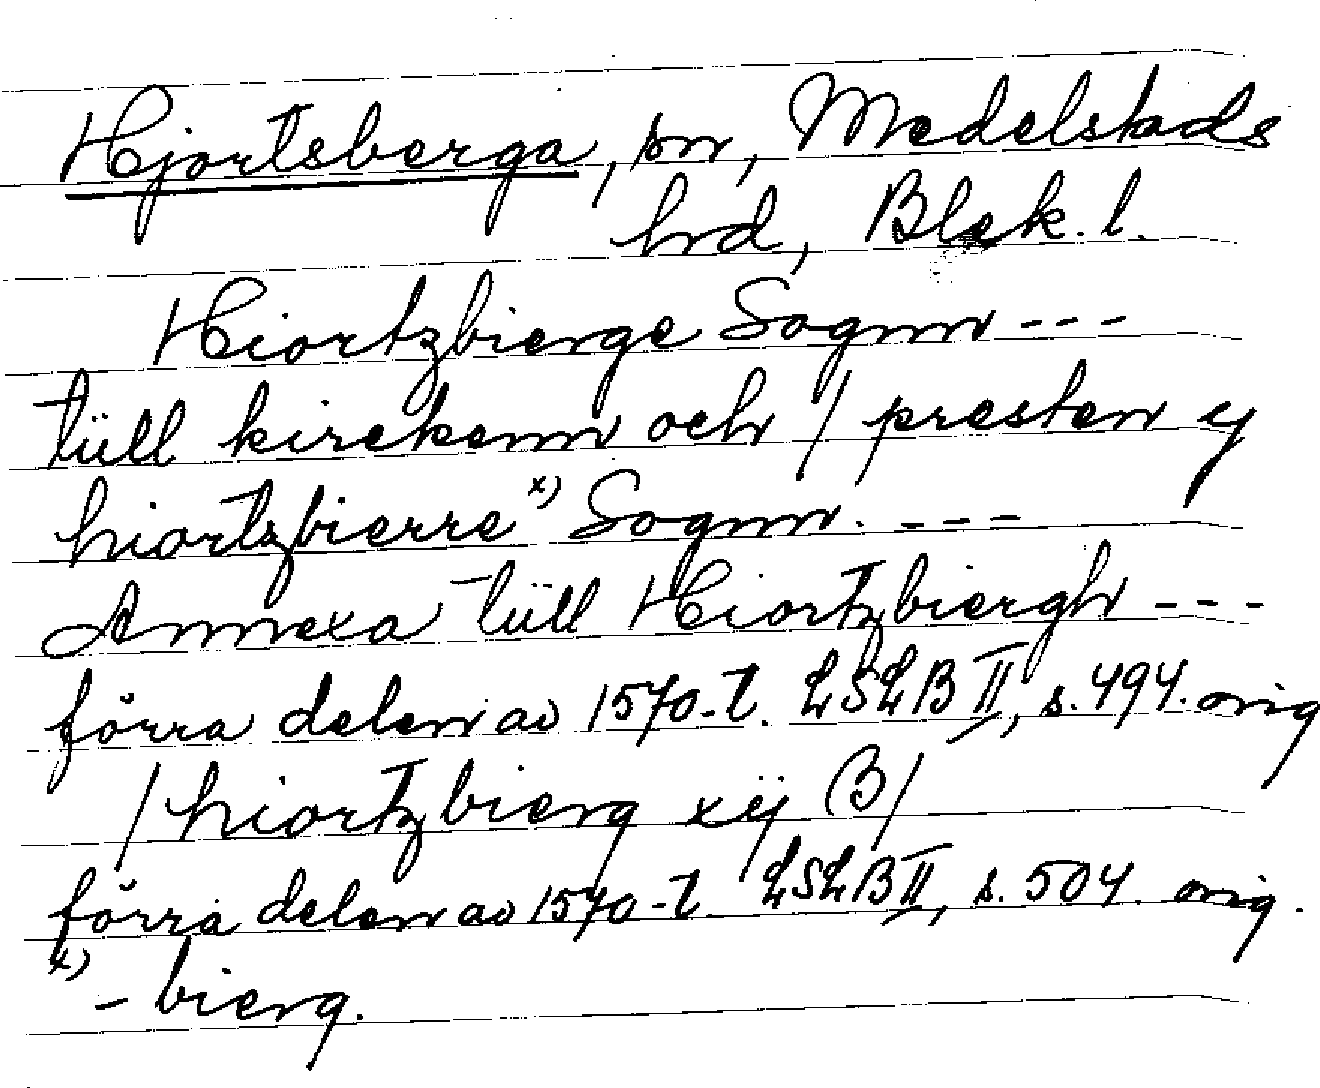 Hjortsberga, sn, Medelstads
hrd, Blek. l.
Hiortzbierge Sognn ---
tüll kirckenn och / presten y
hiortzbierre x) Sognn. ---
Annexa tüll Hiortzbiergh ---
förra delen av 1570-t. LSLB II, s. 494. orig
/ hiortzbierg xij B /
förra delen av 1570-t LSLB II, s. 504. orig.
x) - bierg.